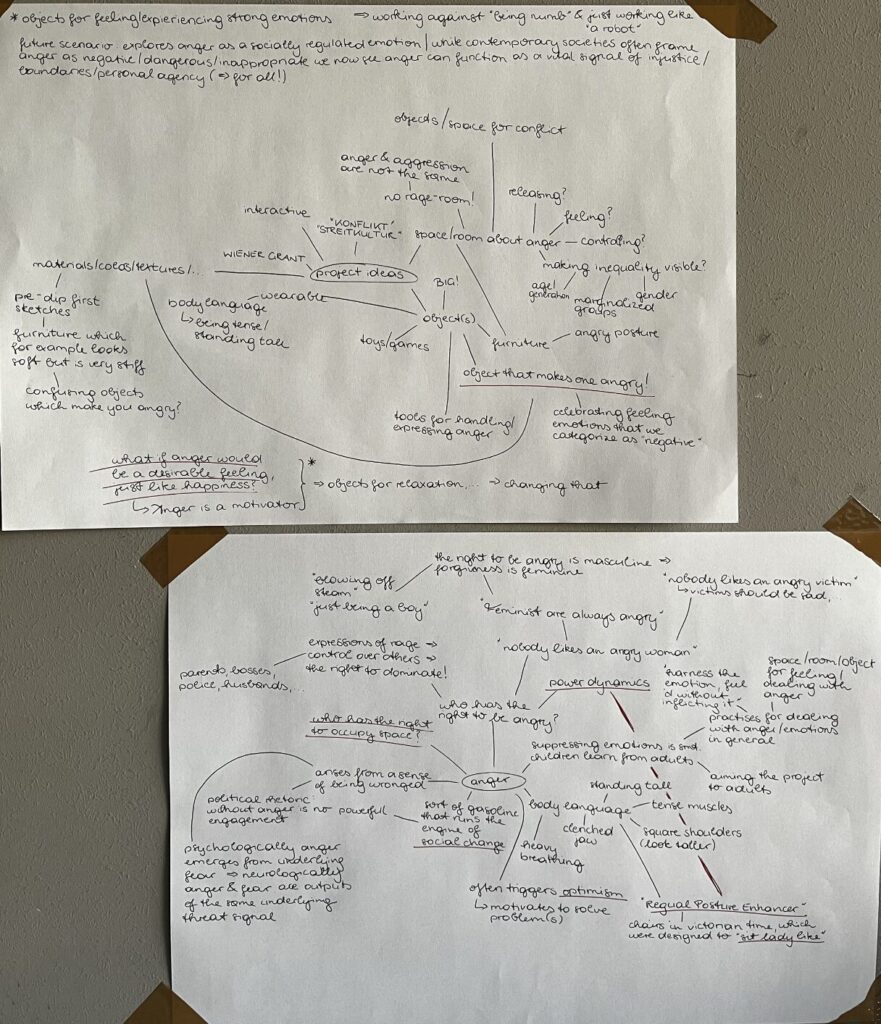 * objects for feeling/expieriencing strong emotions → working against "being numb" & just working like
"a robot"
future scenario: explores anger as a socially regulated emotion | while contemporary societies often frame
anger as negative/dangerous/inappropriate we now see anger can function as a vital signal of injustice/
boundaries/personal agency (⇒ for all!)
objects/space for conflict
anger & aggression
are not the same
no rage-room!
releasing?
feeling?
interactive
"KONFLIKT/
STREITKULTUR"
space/room about anger – controling?
making inequality visible?
age/
generation
marginalized
groups
gender
WIENER GRANT
materials/colors/textures/...
project ideas
BIG!
wearable
body language
↳ being tense/
standing tall
object(s)
toys/games
furniture
angry posture
pre-dip first
sketches
furniture which
for example looks
soft but is very stiff
confusing objects
which make you angry?
object that makes one angry!
tools for handling/
expressing anger
celebrating feeling
emotions that we
categorize as "negative"
what if anger would
be a desirable feeling,
just like happiness?
↳ Anger is a motivator
*
⇒ objects for relaxation,... ⇒ changing that
the right to be angry is masculine ⇒
forgiveness is feminine
"blowing off
steam"
"just being a boy"
"nobody likes an angry victim"
↳ victims should be sad,...
"Feminist are always angry"
"nobody likes an angry woman"
expressions of rage ⇒
control over others ⇒
the right to dominate!
parents, bosses,
police, husbands,...
who has the
right to be angry?
power dynamics
"harness the
emotion, fuel
d without
inflicting it"
space/room/object
for feeling/
dealing with
anger
practises for dealing
with anger/emotions
in general
who has the right
to occupy space?
suppressing emotions is smth.
children learn from adults
aiming the project
to adults
arises from a sense
of being wronged
anger
political rhetoric:
without anger is no powerful
engagement
sort of gasoline
that runs the
engine of
social change
body language
standing tall
tense muscles
square shoulders
(look taller)
clenched
jaw
heavy
breathing
psychologically anger
emerges from underlying
fear ⇒ neurologically
anger & fear are outputs
of the same underlying
threat signal
often triggers optimism
↳ motivates to solve
problem(s)
"Regual Posture Enhancer"
chairs in victorian time, which
were designed to "sit lady like"